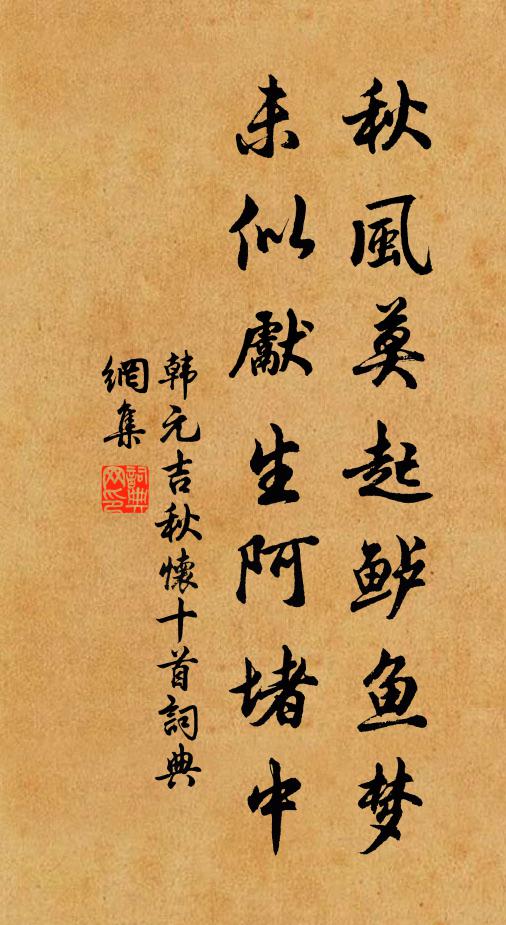 秋風莫起鲈鱼梦
未似獻生阿堵中
韩元吉秋懷十首詞典
網集
詞典網印